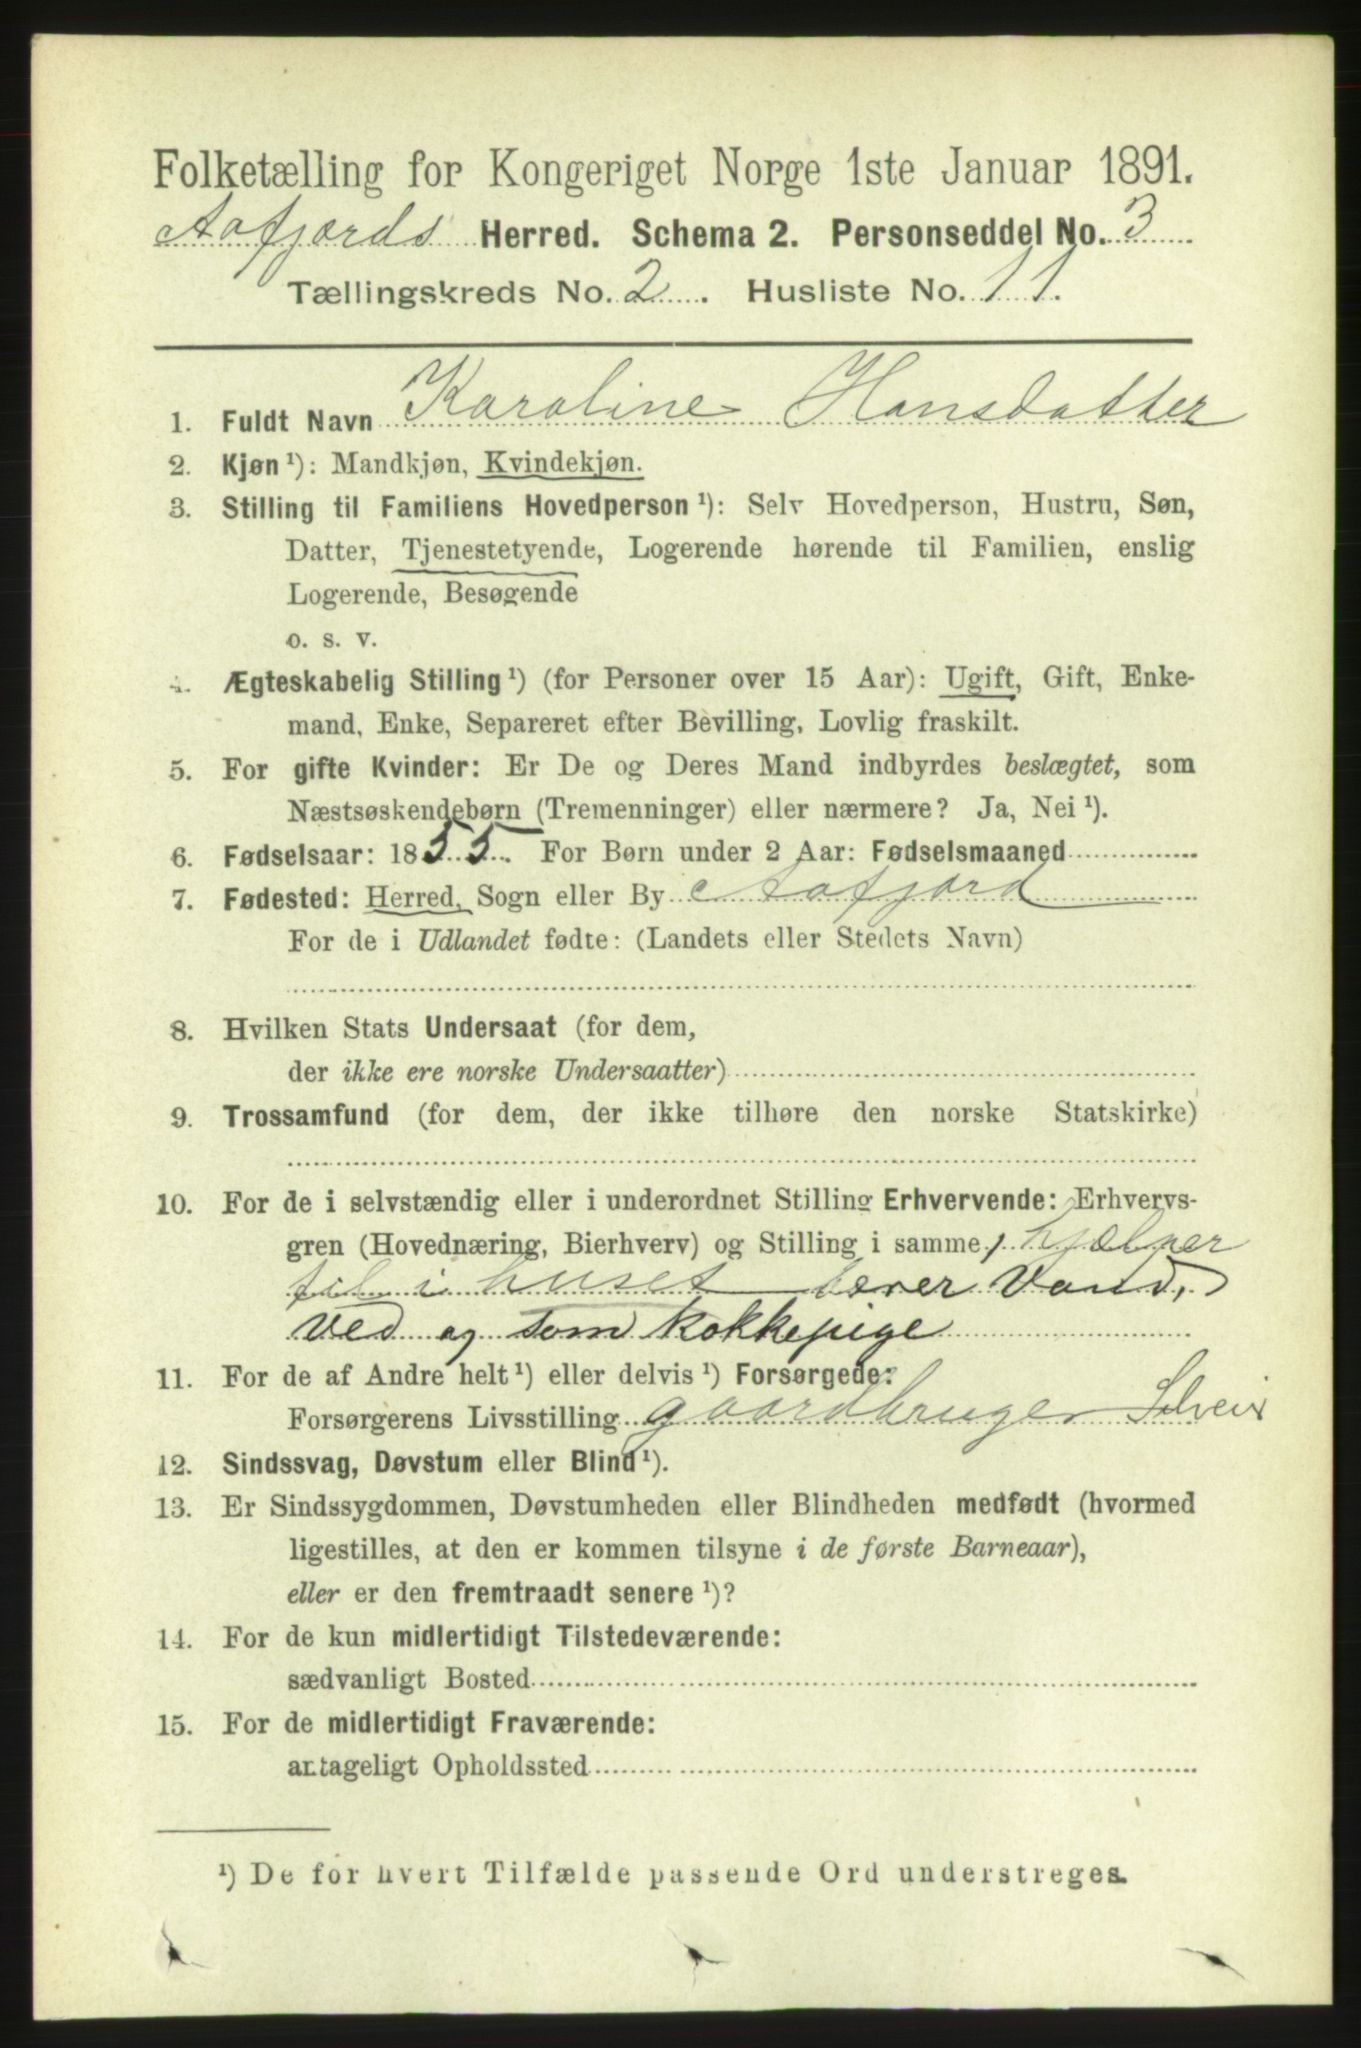 Folketælling for Kongeriget Norge 1ste Januar 1891.
Aafjords Herred. Schema 2. Personseddel No. 3
Tællingskreds No. 2. Husliste No. 11.
1. Fuldt Navn Karoline Hansdatter
2. Kjøn ¹): Mandkjøn, Kvindekjøn.
3. Stilling til Familiens Hovedperson ¹): Selv Hovedperson, Hustru, Søn,
Datter, Tjenestetyende, Logerende hørende til Familien, enslig
Logerende, Besøgende
o. s. v.
4. Ægteskabelig Stilling ¹) (for Personer over 15 Aar): Ugift, Gift, Enke-
mand, Enke, Separeret efter Bevilling, Lovlig fraskilt.
5. For gifte Kvinder: Er De og Deres Mand indbyrdes beslægtet, som
Næstsøskendebørn (Tremenninger) eller nærmere? Ja, Nei ¹).
6. Fødselsaar: 1855. For Børn under 2 Aar: Fødselsmaaned
7. Fødested: Herred, Sogn eller By Aafjord
For de i Udlandet fødte: (Landets eller Stedets Navn)
8. Hvilken Stats Undersaat (for dem,
der ikke ere norske Undersaatter)
9. Trossamfund (for dem, der ikke tilhøre den norske Statskirke)
10. For de i selvstændig eller i underordnet Stilling Erhvervende: Erhvervs-
gren (Hovednæring, Bierhverv) og Stilling i samme, hjælper
til i huset bærer Vand,
Ved og som kokkepige
11. For de af Andre helt ¹) eller delvis ¹) Forsørgede:
Forsørgerens Livsstilling gaardbruger Selveier
12. Sindssvag, Døvstum eller Blind ¹).
13. Er Sindssygdommen, Døvstumheden eller Blindheden medfødt (hvormed
ligestilles, at den er kommen tilsyne i de første Barneaar),
eller er den fremtraadt senere ¹)?
14. For de kun midlertidigt Tilstedeværende:
sædvanligt Bosted
15. For de midlertidigt Fraværende:
antageligt Opholdssted
¹) De for hvert Tilfælde passende Ord understreges.